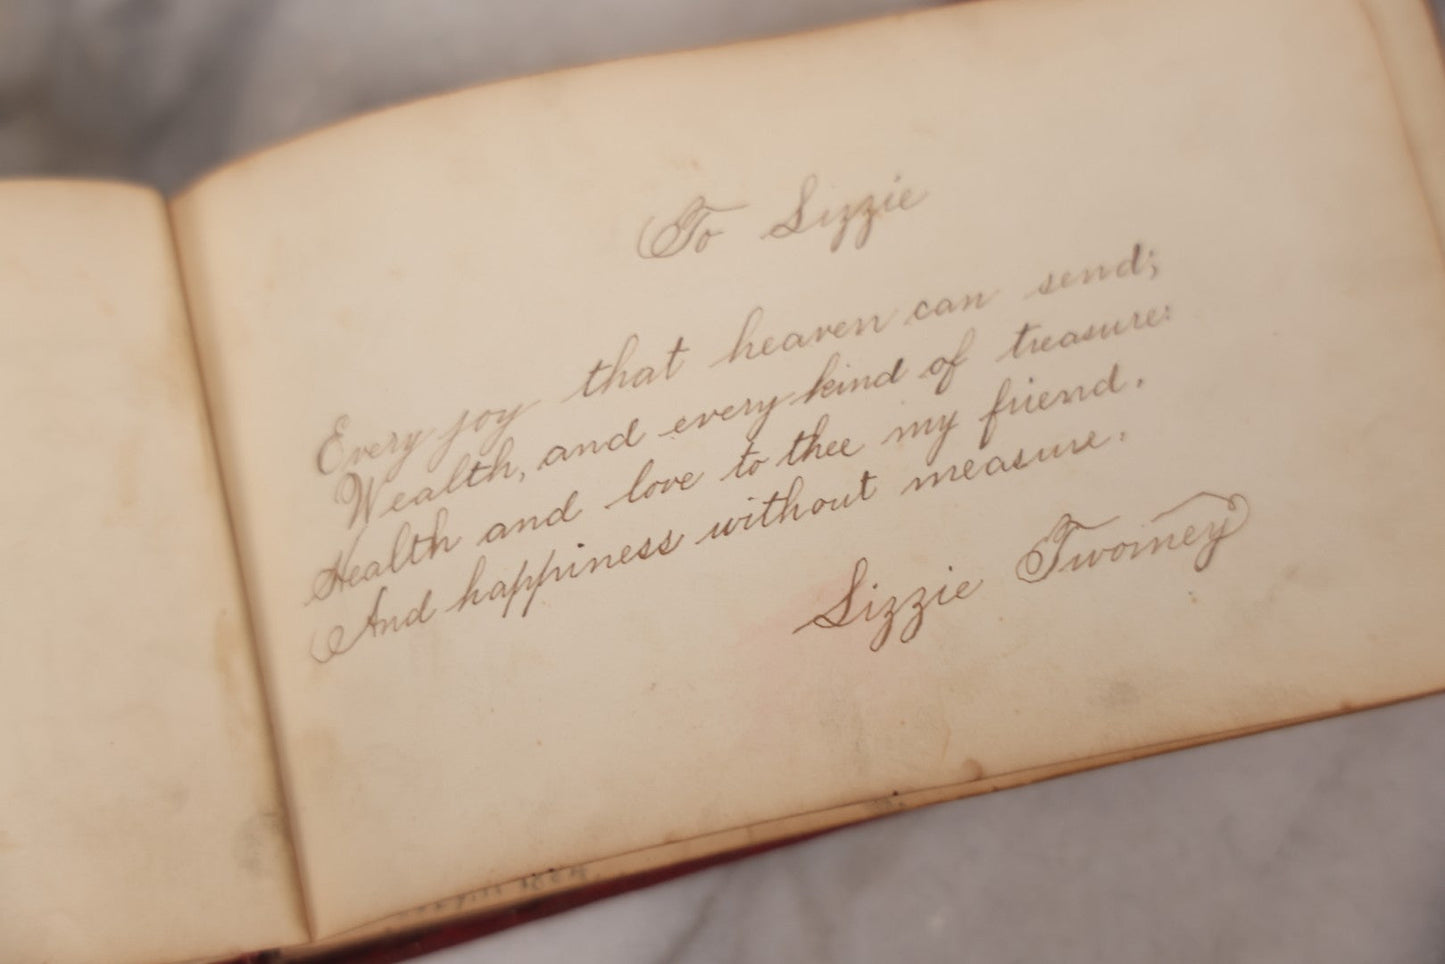 To Lizzie
Every joy that heaven can send;
Wealth, and every kind of treasure:
Health and love to thee my friend.
And happiness without measure.
Lizzie Twomey